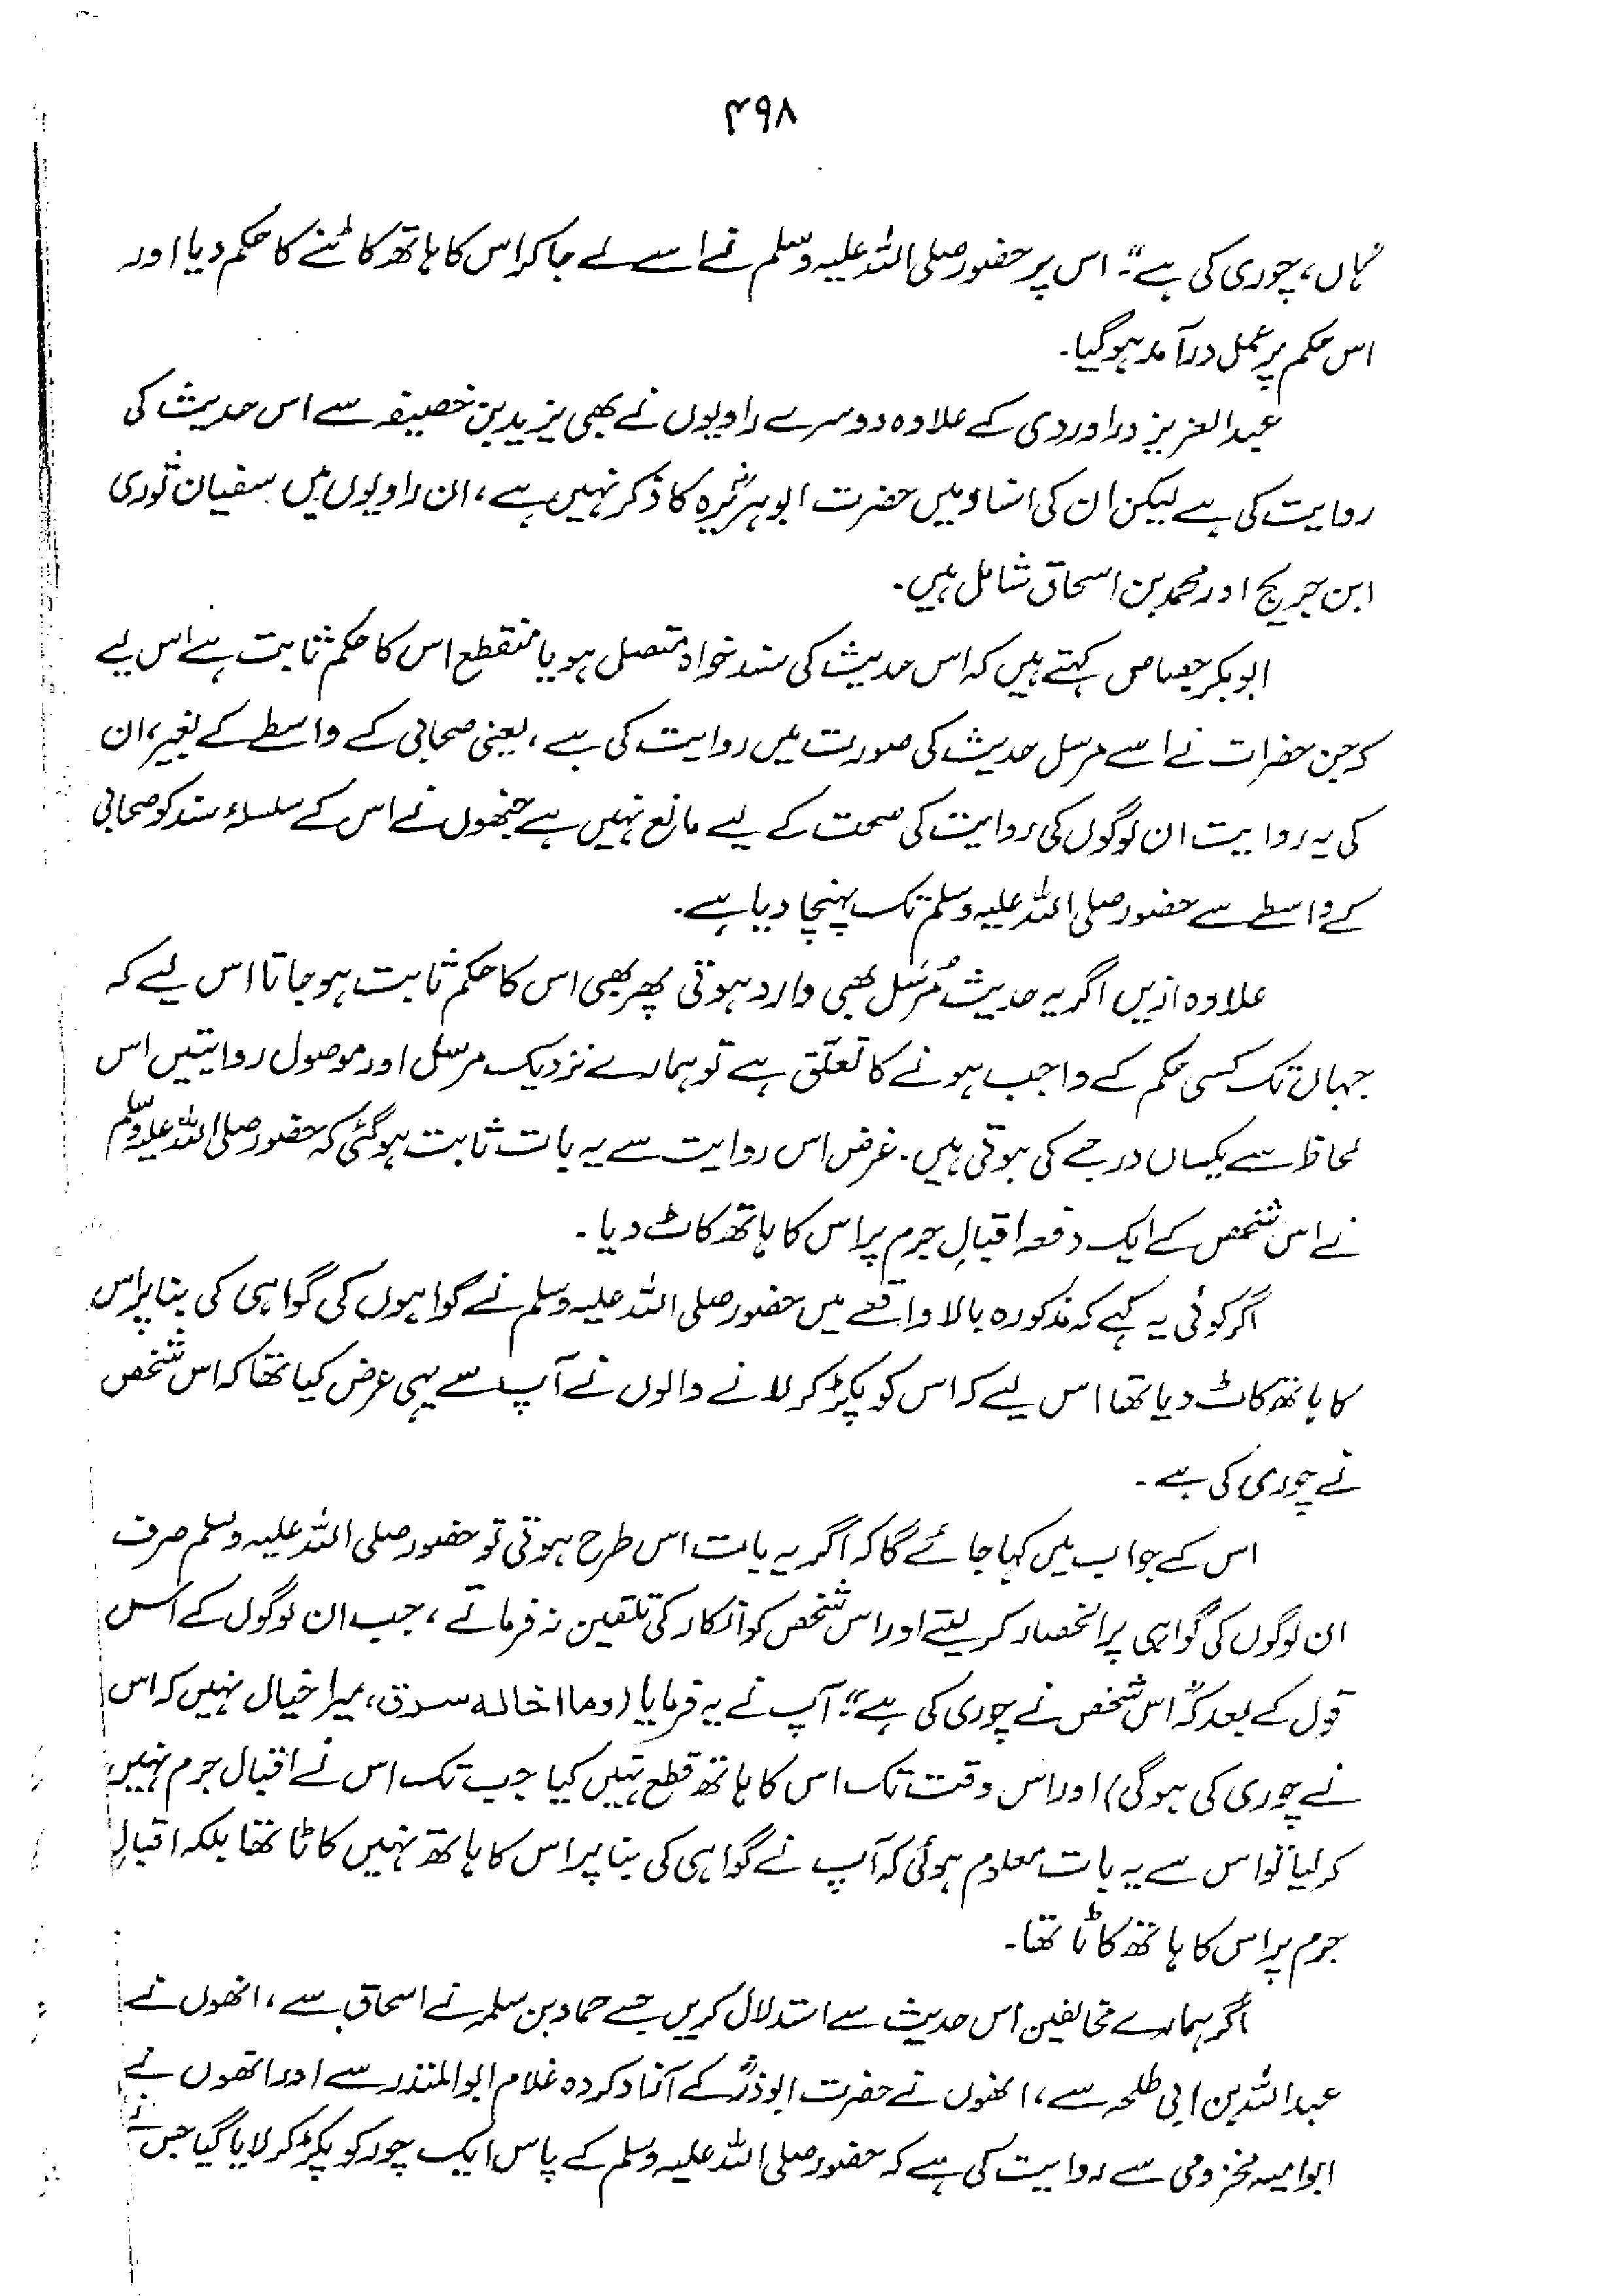 ۴۹۸
ہاں، چوری کی ہے"۔ اس پر حضور صلی اللہ علیہ وسلم نے اسے لے جا کر اس کا ہاتھ کاٹنے کا حکم دیا اور
اس حکم پر عمل درآمد ہوگیا۔
عبدالعزیز دراوردی کے علاوہ دوسرے راویوں نے بھی یزید بن خصیفہ سے اس حدیث کی
روایت کی ہے لیکن ان کی اسناد میں حضرت ابوہریرہؓ کا ذکر نہیں ہے، ان راویوں میں سفیان ثوری
ابن جریج اور محمد بن اسحاق شامل ہیں۔
ابوبکر جصاص کہتے ہیں کہ اس حدیث کی سند خواہ متصل ہو یا منقطع اس کا حکم ثابت ہے اس لیے
کہ جن حضرات نے اسے مرسل حدیث کی صورت میں روایت کی ہے، یعنی صحابی کے واسطے کے بغیر، ان
کی یہ روایت ان لوگوں کی روایت کی صحت کے لیے مانع نہیں ہے جنھوں نے اس کے سلسلۂ سند کو صحابی
کے واسطے سے حضور صلی اللہ علیہ وسلم تک پہنچا دیا ہے۔
علاوہ ازیں اگر یہ حدیث مُرسَل بھی وارد ہوتی پھر بھی اس کا حکم ثابت ہو جاتا اس لیے کہ
جہاں تک کسی حکم کے واجب ہونے کا تعلّق ہے تو ہمارے نزدیک مرسل اور موصول روایتیں اس
لحاظ سے یکساں درجے کی ہوتی ہیں۔ غرض اس روایت سے یہ بات ثابت ہوگئی کہ حضور صلی اللہ علیہ وسلم
نے اس شخص کے ایک دفعہ اقبالِ جرم پر اس کا ہاتھ کاٹ دیا۔
اگر کوئی یہ کہے کہ مذکورہ بالا واقعے میں حضور صلی اللہ علیہ وسلم نے گواہوں کی گواہی کی بنا پر اس
کا ہاتھ کاٹ دیا تھا اس لیے کہ اس کو پکڑ کر لانے والوں نے آپ سے یہی عرض کیا تھا کہ اس شخص
نے چوری کی ہے۔
اس کے جواب میں کہا جائے گا کہ اگر یہ بات اس طرح ہوتی تو حضور صلی اللہ علیہ وسلم صرف
ان لوگوں کی گواہی پر انحصار کر لیتے اور اس شخص کو انکار کی تلقین نہ فرماتے، جب ان لوگوں کے اس
قول کے بعد کہ "اس شخص نے چوری کی ہے" آپ نے یہ فرمایا (وما اخاله سرق، میرا خیال نہیں کہ اس
نے چوری کی ہوگی) اور اس وقت تک اس کا ہاتھ قطع نہیں کیا جب تک اس نے اقبال جرم نہیں
کر لیا تو اس سے یہ بات معلوم ہوئی کہ آپ نے گواہی کی بنا پر اس کا ہاتھ نہیں کاٹا تھا بلکہ اقبالِ
جرم پر اس کا ہاتھ کاٹا تھا۔
اگر ہمارے مخالفین اس حدیث سے استدلال کریں جسے حماد بن سلمہ نے اسحاق سے، انھوں نے
عبداللہ بن ابی طلحہ سے، انھوں نے حضرت ابوذرؓ کے آزاد کردہ غلام ابوالمنذر سے اور انھوں نے
ابوامیہ مخزومی سے روایت کی ہے کہ حضور صلی اللہ علیہ وسلم کے پاس ایک چور کو پکڑ کر لایا گیا جس نے